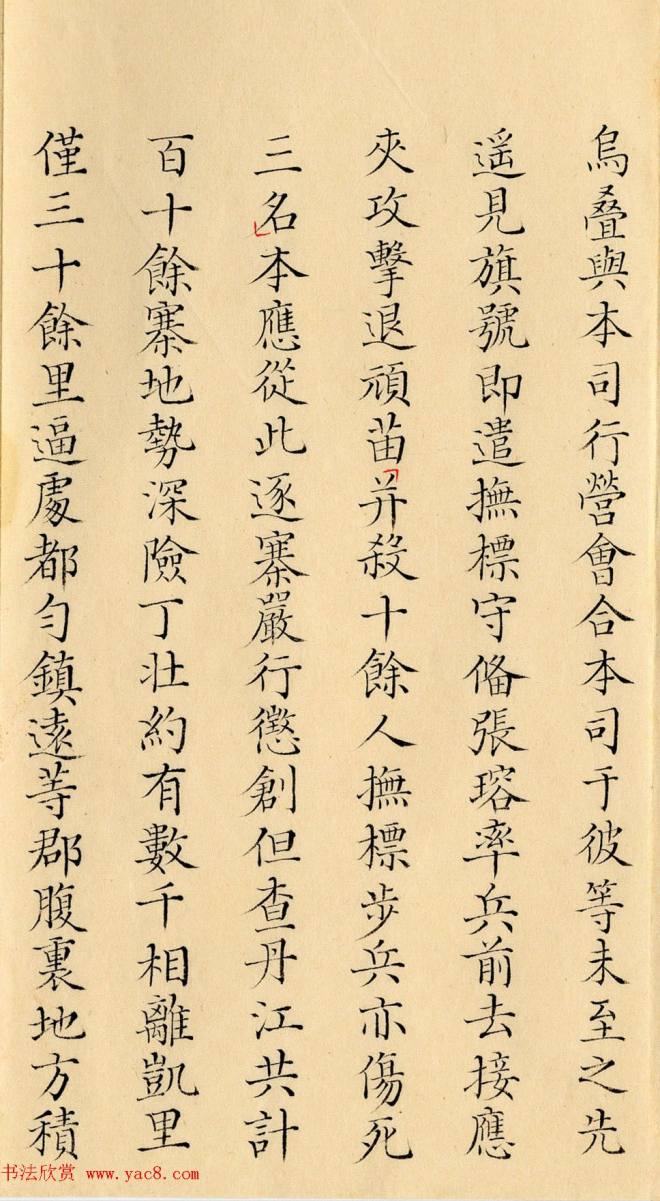 烏叠與本司行營會合本司于彼等未至之先
遥見旗號即遣撫標守俻張瑢率兵前去接應
夾攻擊退頑苗并殺十餘人撫標步兵亦傷死
三名本應從此逐寨嚴行懲創但查丹江共計
百十餘寨地勢深險丁壯約有數千相離凱里
僅三十餘里逼處都勻鎮遠等郡腹裏地方積
书法欣赏 www.yac8.com